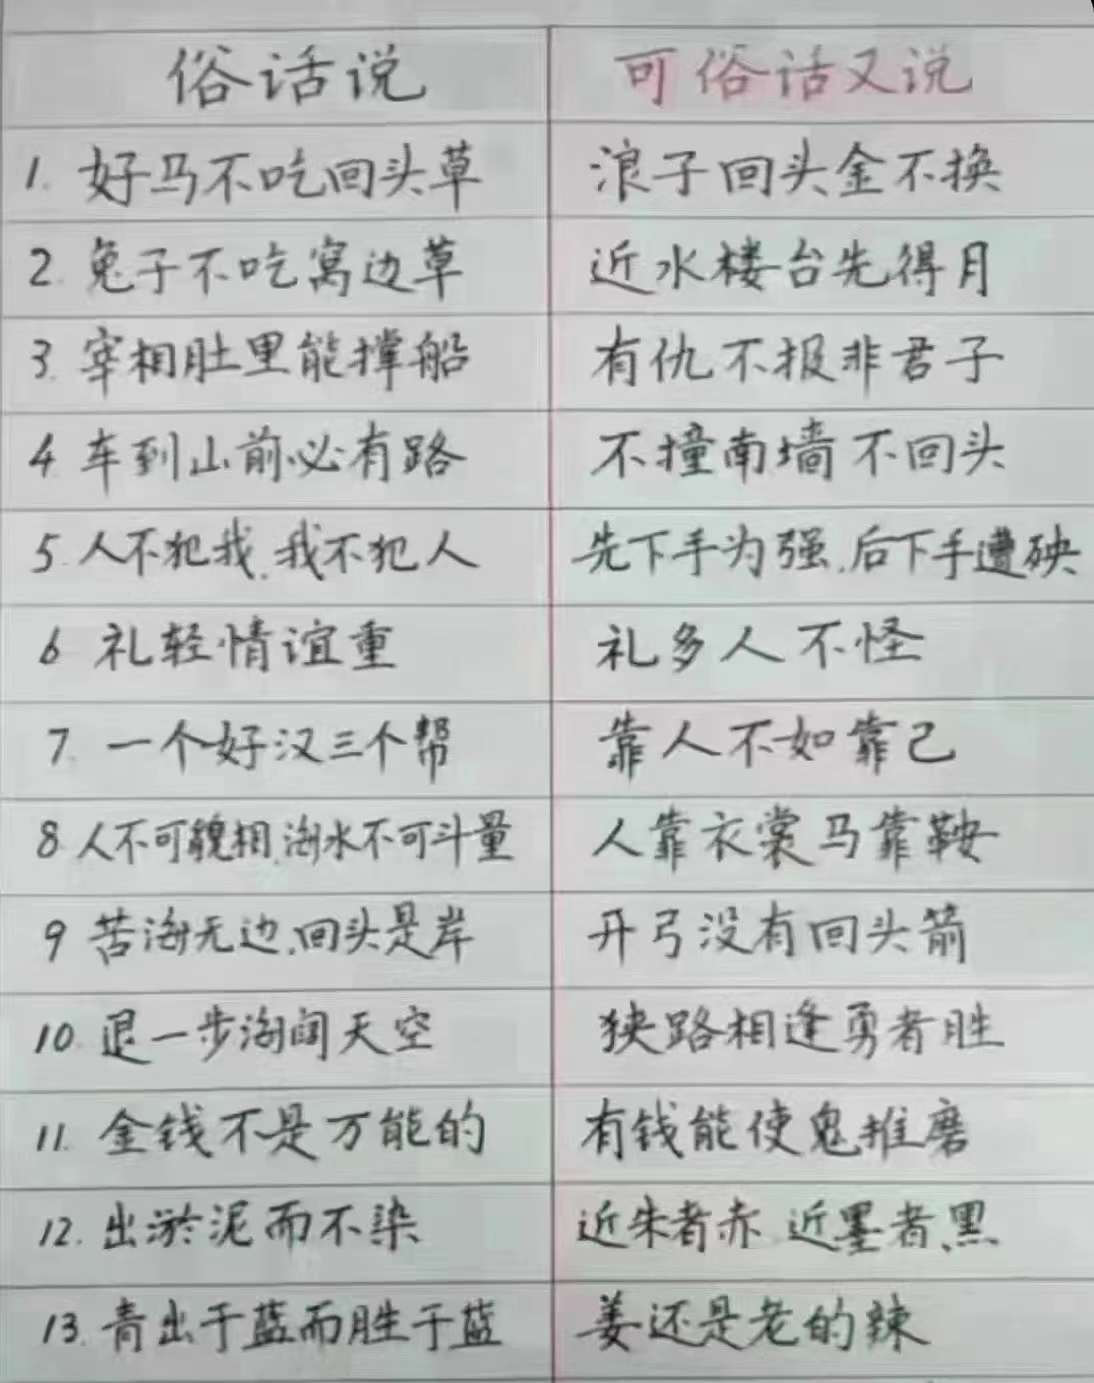 俗话说 可俗话又说
1. 好马不吃回头草 浪子回头金不换
2. 兔子不吃窝边草 近水楼台先得月
3. 宰相肚里能撑船 有仇不报非君子
4 车到山前必有路 不撞南墙不回头
5. 人不犯我,我不犯人 先下手为强,后下手遭殃
6 礼轻情谊重 礼多人不怪
7. 一个好汉三个帮 靠人不如靠己
8 人不可貌相,海水不可斗量 人靠衣裳马靠鞍
9 苦海无边,回头是岸 开弓没有回头箭
10. 退一步海阔天空 狭路相逢勇者胜
11. 金钱不是万能的 有钱能使鬼推磨
12. 出淤泥而不染 近朱者赤 近墨者黑
13. 青出于蓝而胜于蓝 姜还是老的辣